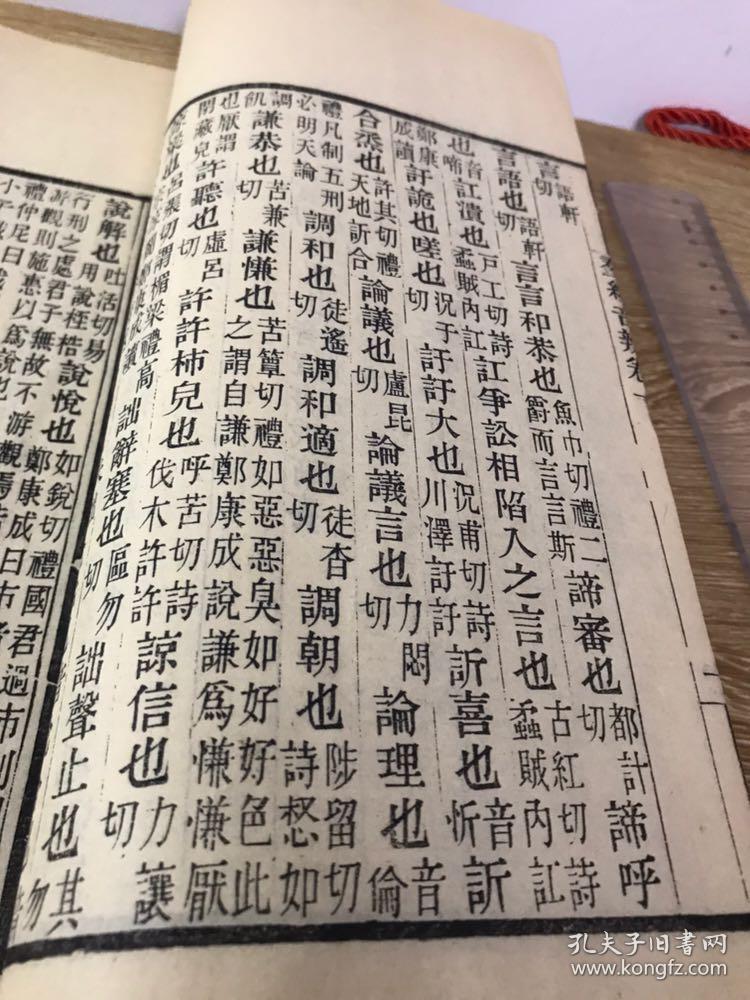 羣經音辨卷一
二
言語也語軒切言言和恭也魚巾切禮二爵而言言斯諦審也都計切諦呼
也音啼訌潰也戶工切詩蟊賊內訌訌爭訟相陷入之言也古紅切詩蟊賊內訌
鄭康成讀訏詭也嗟也況于切訏訏大也況甫切詩川澤訏訏訢喜也音忻訢
合烝也許其切禮天地訢合論議也盧昆切論議言也力悶切論理也音倫
禮凡制五刑必明天論調和也徒遙切調和適也徒杳切調朝也陟留切詩惄如
調飢謙恭也苦兼切謙慊也苦簟切禮如惡惡臭如好好色此之謂自謙鄭康成說謙爲慊慊厭
也厭謂閉藏皃許聽也虛呂切許許柿皃也呼苦切詩伐木許許諒信也力讓切
梁也呂張切謂楣梁禮高詘辭塞也區勿切詘聲止也其勿
說解也吐活切易用說桎梏說悅也如銳切禮國君過市則刑
行刑之處君子無故不游觀焉若
游觀則施惠以爲說也鄭康成曰市者
禮仲尼曰
小子
孔夫子旧书网
www.kongfz.com